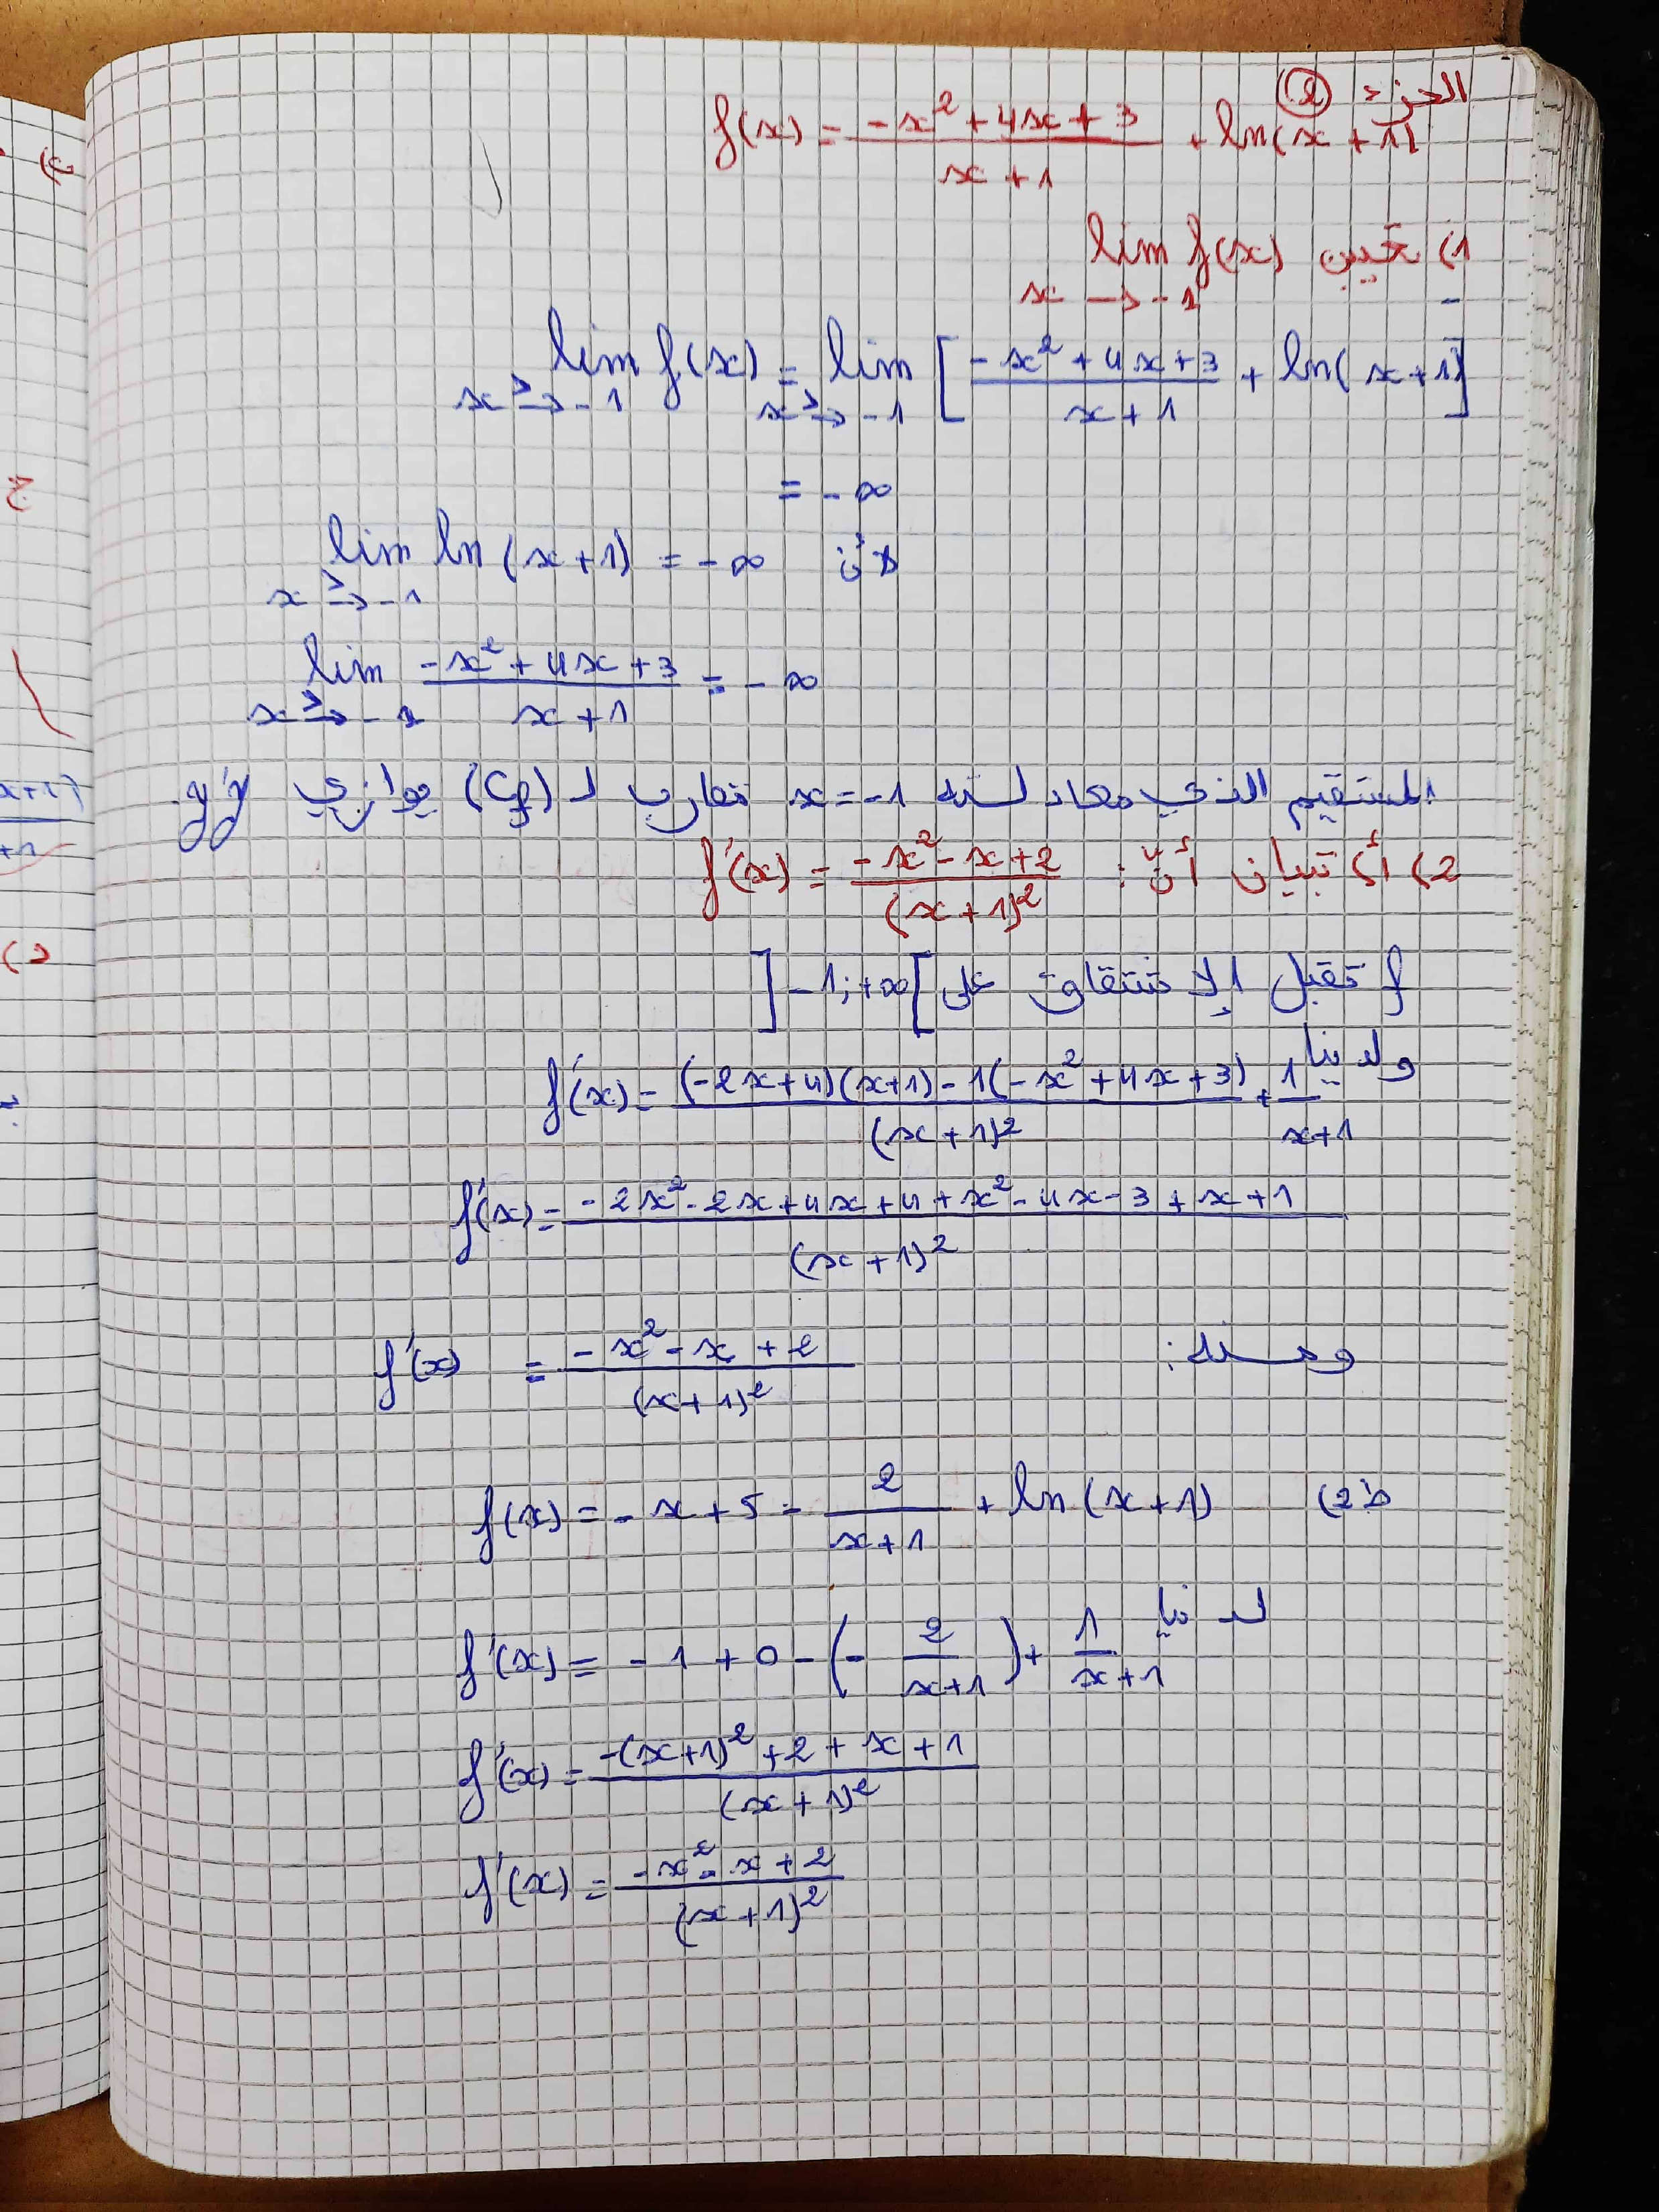 الجزء 2
f(x) = (-x² + 4x + 3)/(x + 1) + ln(x + 1)
1) تعيين lim f(x)
x → -1
lim f(x) = lim [(-x² + 4x + 3)/(x + 1) + ln(x + 1)]
x >→ -1 x >→ -1
= -∞
لأن lim ln(x + 1) = -∞
x >→ -1
lim (-x² + 4x + 3)/(x + 1) = -∞
x >→ -1
المستقيم الذي معادلته x = -1 مقارب لـ (Cf) يوازي y'y.
2) أ) تبيان أنّ: f'(x) = (-x² - x + 2)/(x + 1)²
f تقبل الإشتقاق على ]-1; +∞[
ولدينا f'(x) = ((-2x + 4)(x + 1) - 1(-x² + 4x + 3))/(x + 1)² + 1/(x + 1)
f'(x) = (-2x² - 2x + 4x + 4 + x² - 4x - 3 + x + 1)/(x + 1)²
ومنه: f'(x) = (-x² - x + 2)/(x + 1)²
ط2) f(x) = -x + 5 - 2/(x + 1) + ln(x + 1)
لدينا f'(x) = -1 + 0 - (-2/(x + 1)) + 1/(x + 1)
f'(x) = (-(x + 1)² + 2 + x + 1)/(x + 1)²
f'(x) = (-x² - x + 2)/(x + 1)²